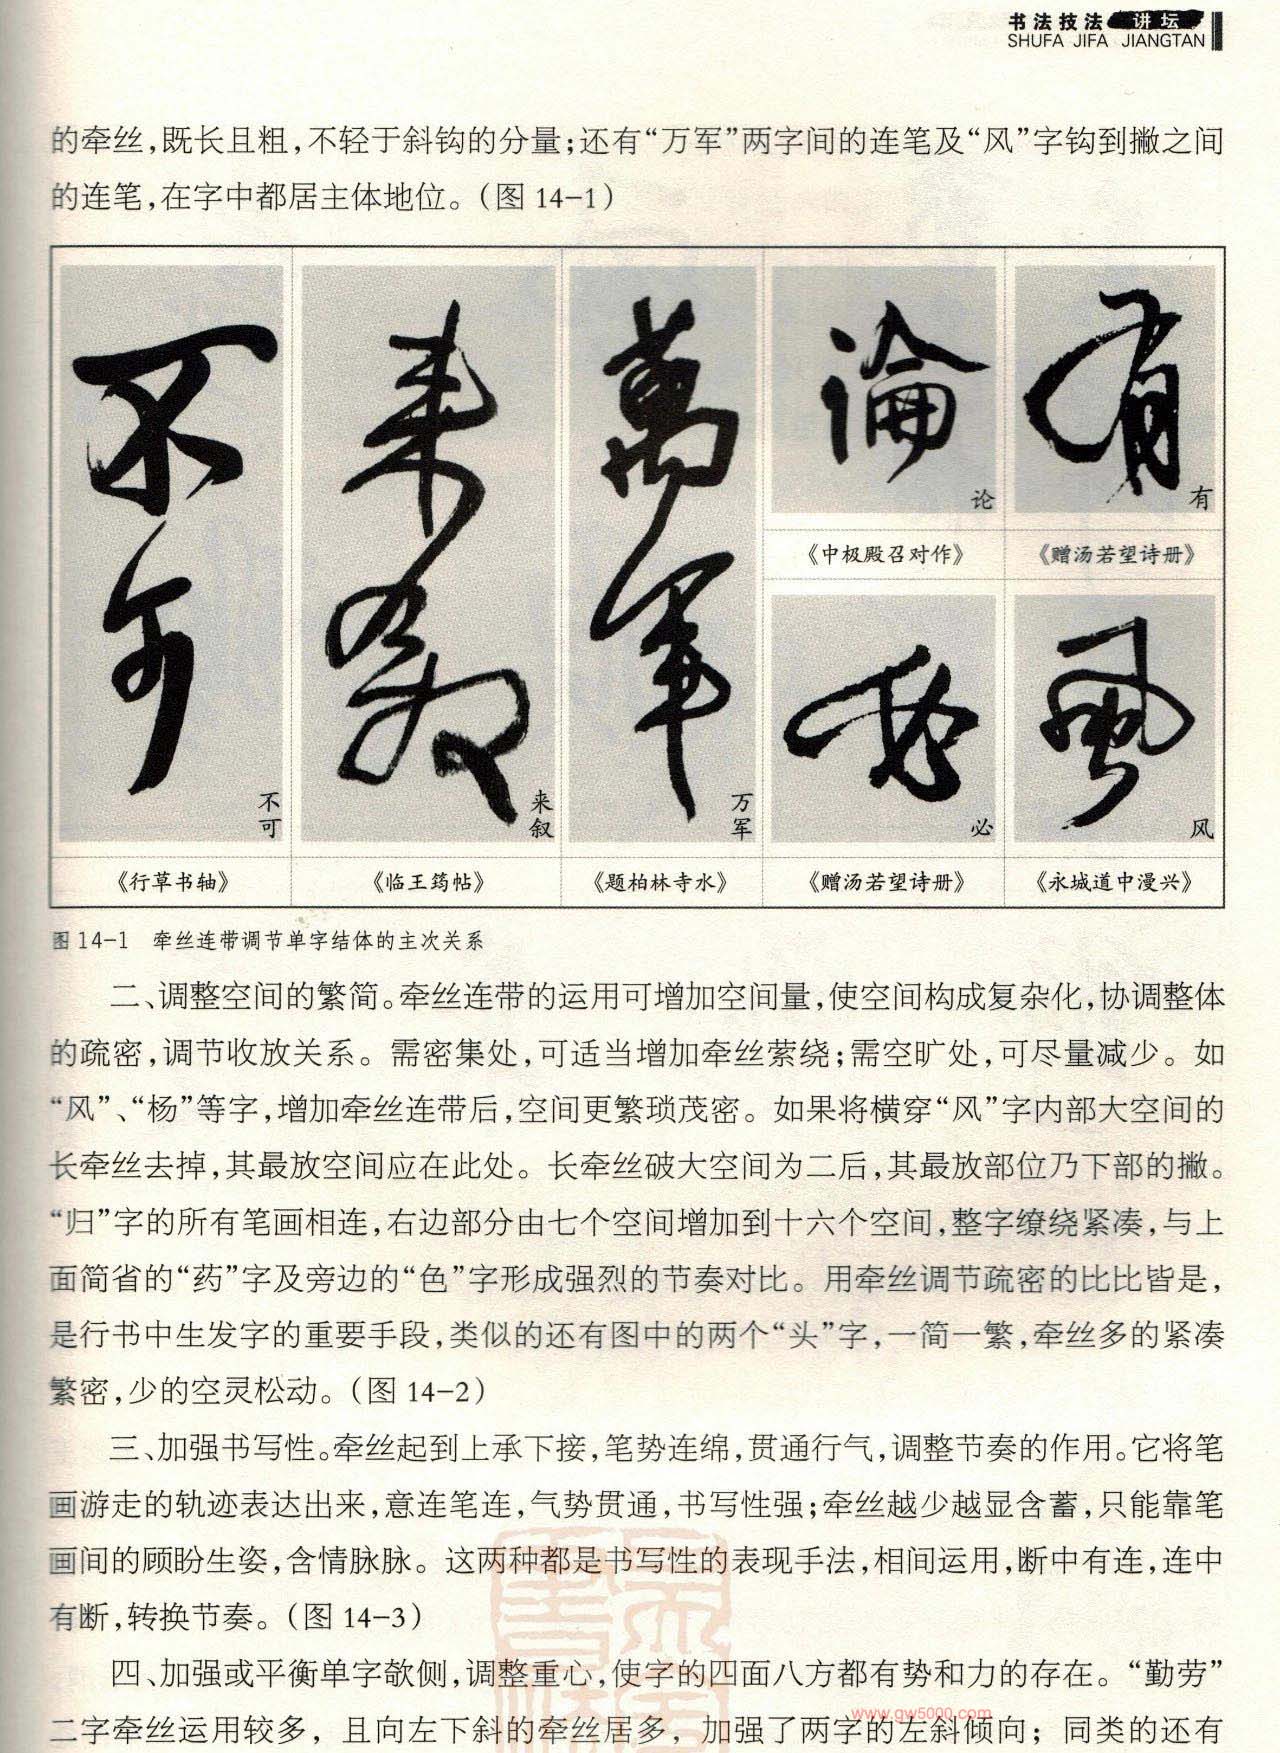 书法技法 讲坛
SHUFA JIFA JIANGTAN
的牵丝，既长且粗，不轻于斜钩的分量；还有“万军”两字间的连笔及“风”字钩到撇之间
的连笔，在字中都居主体地位。（图 14-1）
不可
来叙
萬军
論
有
不可
来叙
万军
论
有
《中极殿召对作》
《赠汤若望诗册》
必
風
必
风
《行草书轴》
《临王筠帖》
《题柏林寺水》
《赠汤若望诗册》
《永城道中漫兴》
图 14-1 牵丝连带调节单字结体的主次关系
二、调整空间的繁简。牵丝连带的运用可增加空间量，使空间构成复杂化，协调整体
的疏密，调节收放关系。需密集处，可适当增加牵丝萦绕；需空旷处，可尽量减少。如
“风”、“杨”等字，增加牵丝连带后，空间更繁琐茂密。如果将横穿“风”字内部大空间的
长牵丝去掉，其最放空间应在此处。长牵丝破大空间为二后，其最放部位乃下部的撇。
“归”字的所有笔画相连，右边部分由七个空间增加到十六个空间，整字缭绕紧凑，与上
面简省的“药”字及旁边的“色”字形成强烈的节奏对比。用牵丝调节疏密的比比皆是，
是行书中生发字的重要手段，类似的还有图中的两个“头”字，一简一繁，牵丝多的紧凑
繁密，少的空灵松动。（图 14-2）
三、加强书写性。牵丝起到上承下接，笔势连绵，贯通行气，调整节奏的作用。它将笔
画游走的轨迹表达出来，意连笔连，气势贯通，书写性强；牵丝越少越显含蓄，只能靠笔
画间的顾盼生姿，含情脉脉。这两种都是书写性的表现手法，相间运用，断中有连，连中
有断，转换节奏。（图 14-3）
四、加强或平衡单字欹侧，调整重心，使字的四面八方都有势和力的存在。“勤劳”
二字牵丝运用较多，且向左下斜的牵丝居多，加强了两字的左斜倾向；同类的还有
www.gw5000.com